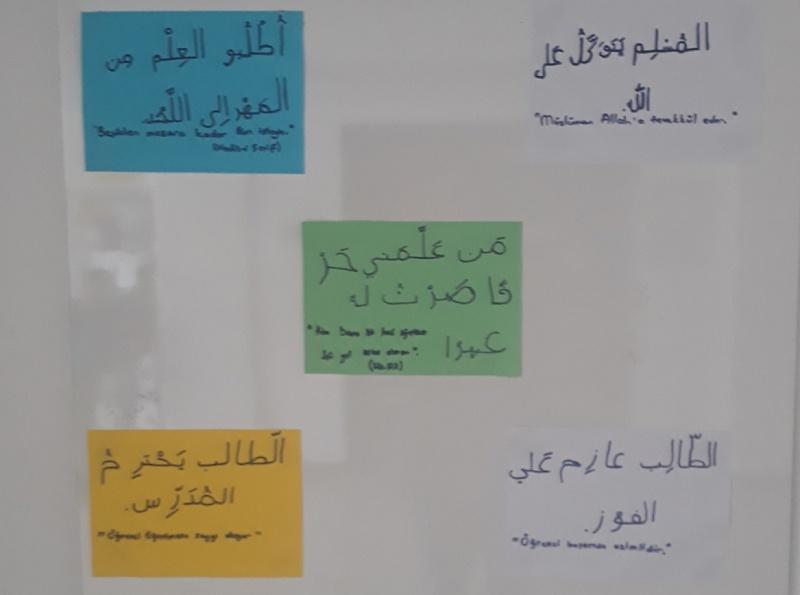 أُطْلُبُو العِلْم مِن
المَهْدِ إِلى اللَّحْد
"Beşikten mezara kadar ilim isteyin."
(Hadis-i Şerif)
المُسْلِم يَتَوَكَّلُ عَلى
الله.
"Müslüman Allah'a tevekkül eder."
مَن عَلَّمَني حَرْ
فًا صَرْتُ لَهُ
عبدا
"Kim bana bir harf öğretse
(Hz. Ali)
الطَّالب يَحْتَرِ مُ
المُدَرِّ س.
"Öğrenci öğretmene saygı duyar"
الطَّالِب عازِم عَلي
الفوْز.
"Öğrenci başarıda azimlidir."